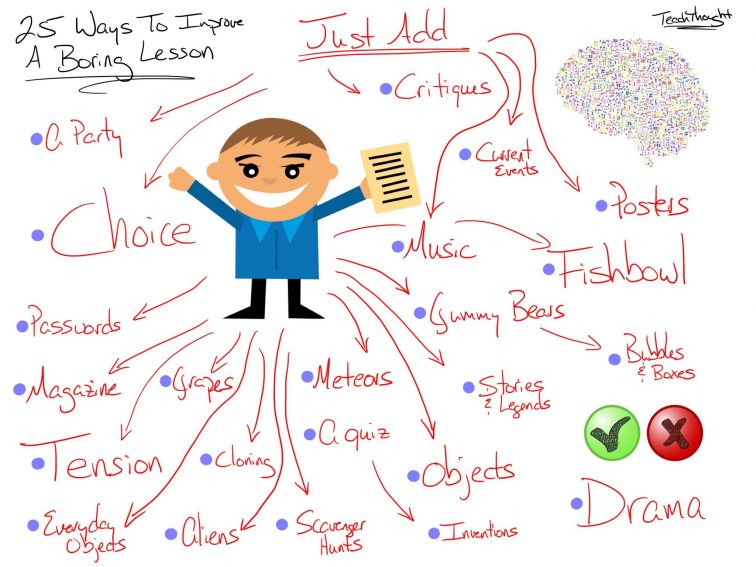 25 Ways To Improve
A Boring Lesson
Just Add
TeachThought
Critiques
A Party
Current
Events
Choice
Posters
Music
Fishbowl
Passwords
Gummy Bears
Bubbles
& Boxes
Magazine
Grapes
Meteors
Stories
& Legends
Tension
Cloning
A quiz
Objects
Everyday
Objects
Aliens
Scavenger
Hunts
Inventions
Drama